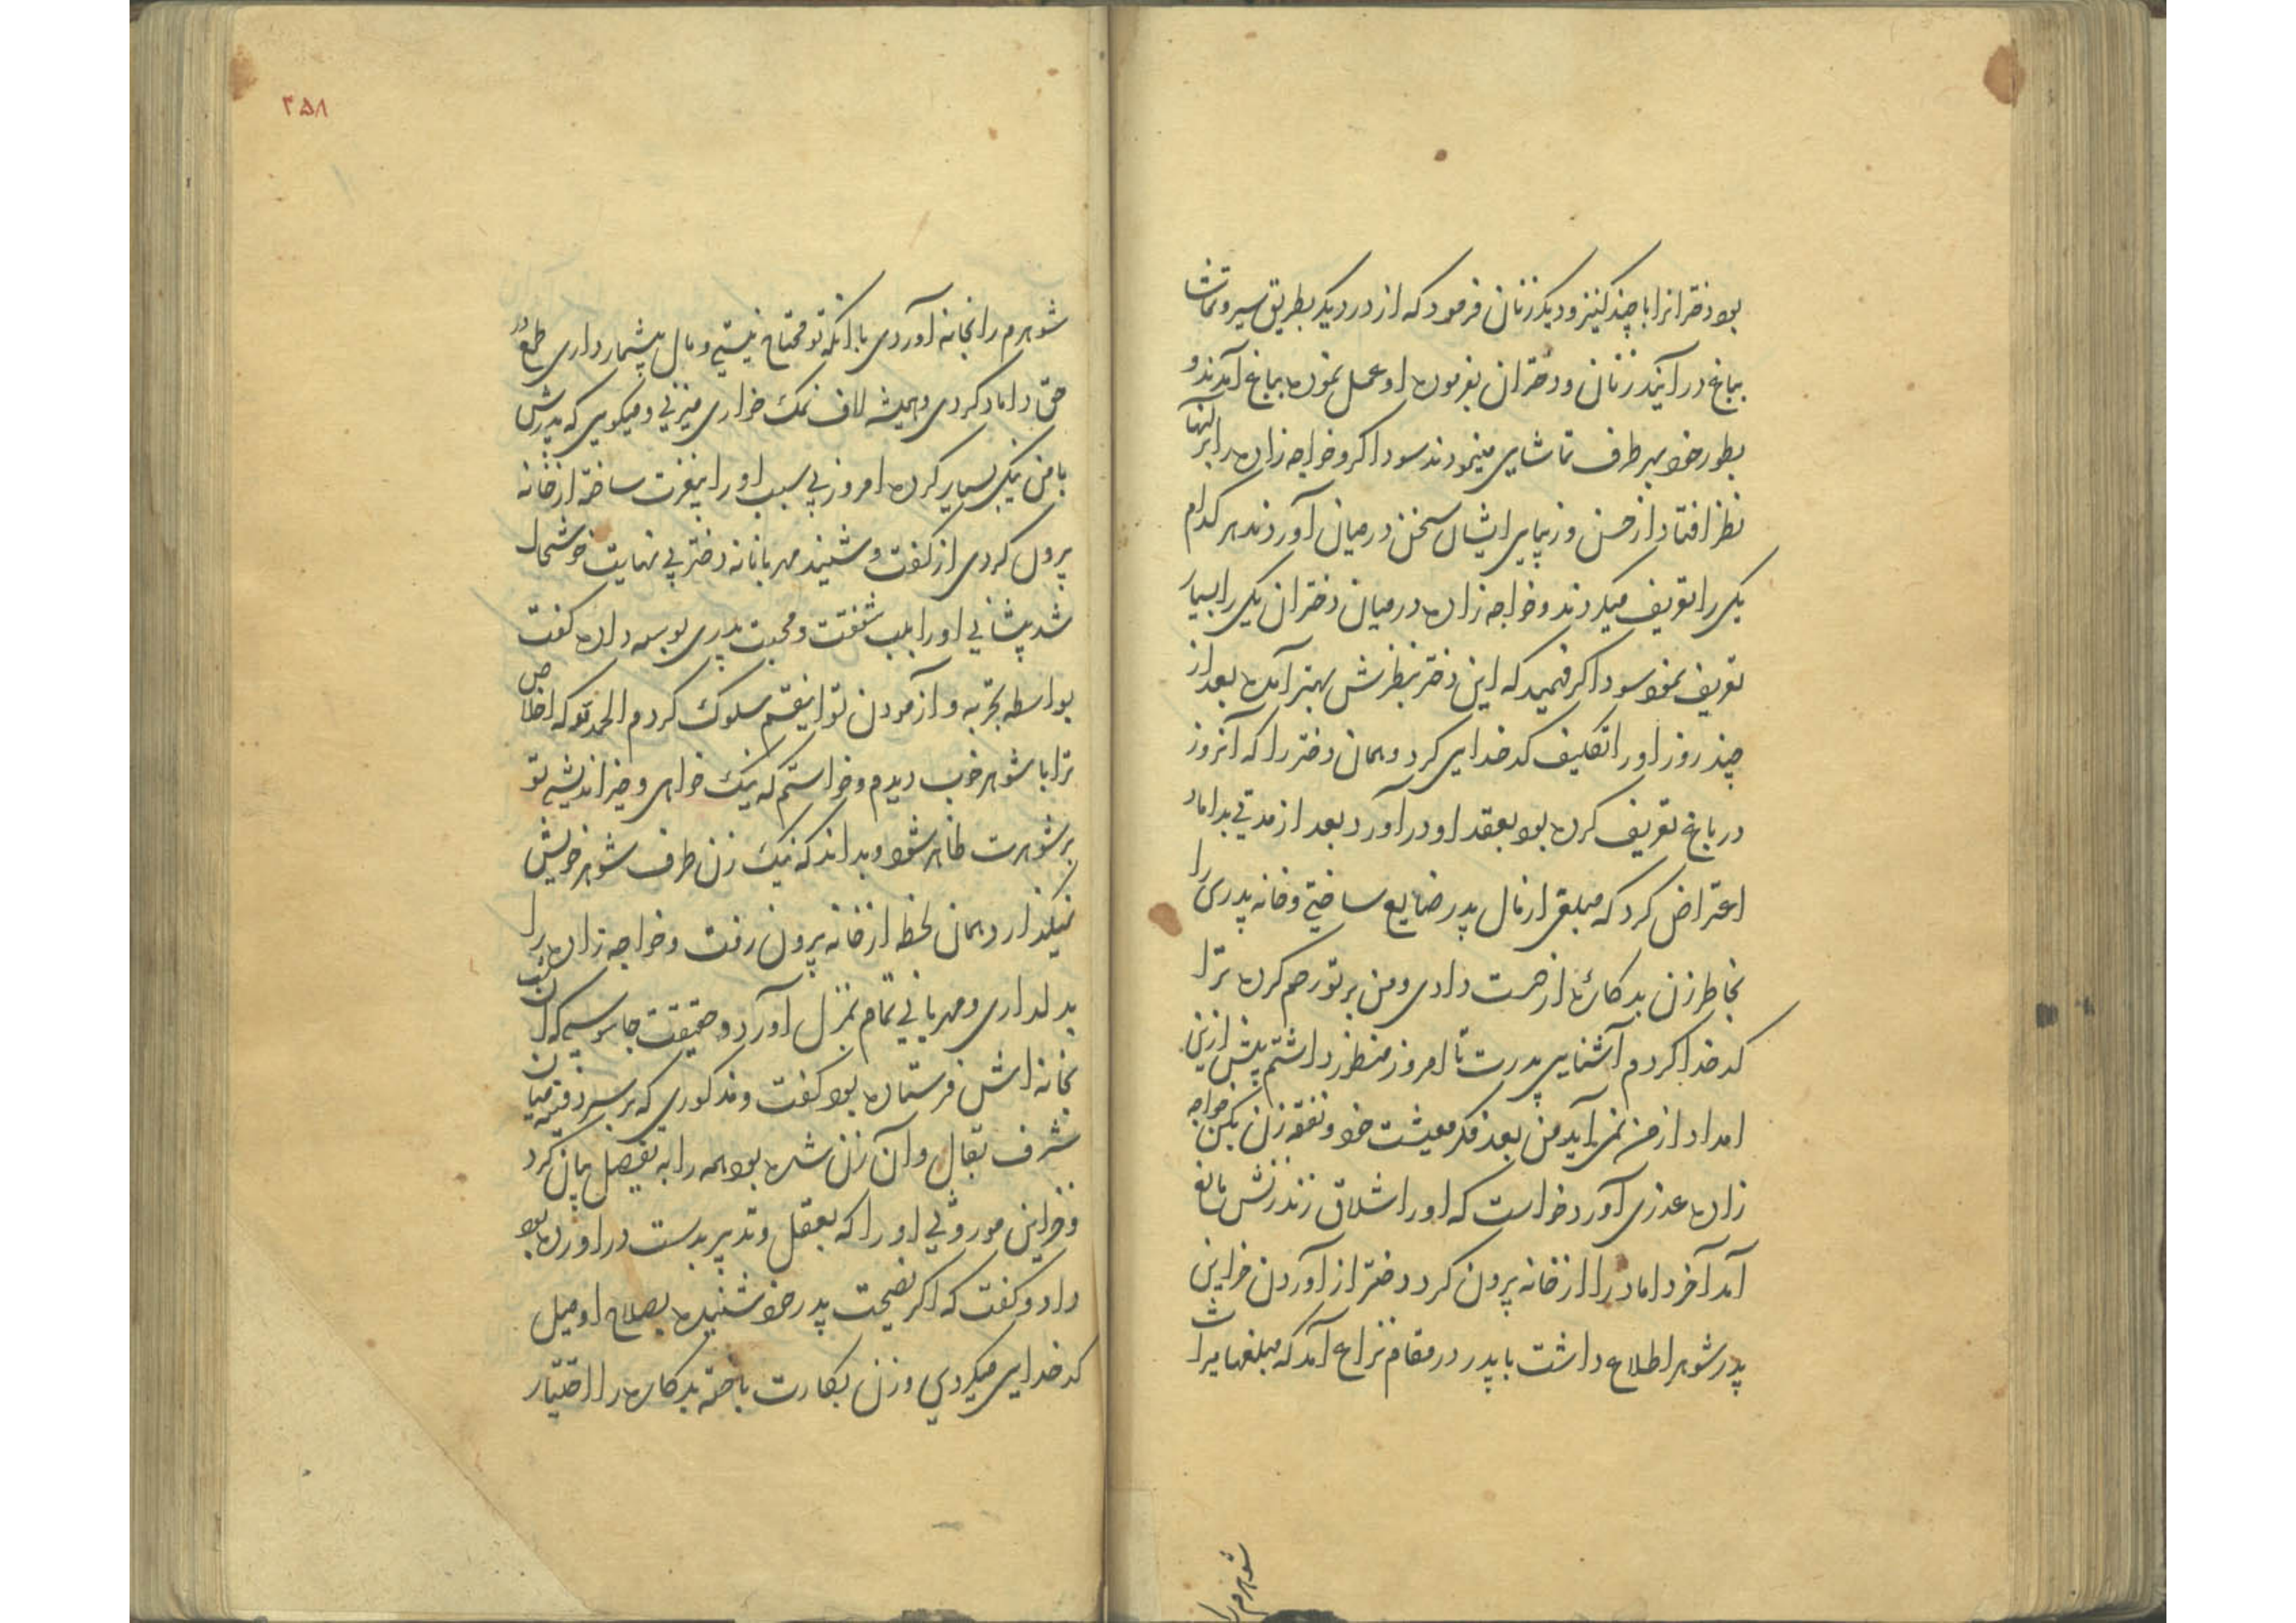 بود دخترانرا با چند کنیز و دیگر زنان فرمود که از در دیگر بطریق سیر و تماشا
بباغ در آیند زنان و دختران بفرموده او عمل نموده بباغ آمدند و
بطور خود بهر طرف تماشای مینمودند سوداگر و خواجه زاده را بر آنها
نظر افتاد از حسن و زیبایی ایشان سخن در میان آوردند هر کدام
یکی را تعریف میکردند و خواجه زاده در میان دختران یکی را بسیار
تعریف نمود سوداگر فهمید که این دختر بنظرش بهتر آمده بعد از
چند روز او را تکلیف کدخدایی کرد و همان دختر را که آنروز
در باغ تعریف کرده بود بعقد او در آورد بعد از مدتی بداماد
اعتراض کرد که مبلغی از مال پدر ضایع ساختی و خانه پدری را
بخاطر زن بدکاره از دست دادی و من بر تو رحم کرده ترا
کدخدا کردم آشنایی پدرت تا امروز منظور داشتم پیش ازین
امداد از من نمی آید من بعد فکر معیشت خود و نفقه زن بکن خواجه
زاده عذری آورد خواست که او را شلاق زند زنش مانع
آمد آخر داماد را از خانه بیرون کرد دختر از آوردن خزاین
پدر شوهر اطلاع داشت با پدر در مقام نزاع آمد که مبلغهای میراث
شوهرم را
۲۵۸
شوهرم را بخانه آوردی با آنکه تو محتاج نیستی و مال بیشمار داری طمع در
حق داماد کردی و همیشه لاف نمک خواری میزنی و میگویی که پدرش
با من نیکی بسیار کرده امروز بی سبب او را بیعزت ساخته از خانه
بیرون کردی از گفت و شنید مهربانانه دختر بی نهایت خوشحال
شد پیشانی او را بلب شفقت و محبت پدری بوسه داده گفت
بواسطه تجربه و آزمودن تو اینقسم سلوک کردم الحمد لله که اخلاص
ترا با شوهر خوب دیدم و خواستم که نیک خواهی و خیر اندیشی تو
بر شوهرت ظاهر شود و بداند که نیک زن طرف شوهر خویش
نمیگذارد همان لحظه از خانه بیرون رفت و خواجه زاده را
بدلداری و مهربانی تمام بمنزل آورد و حقیقت جاسوسی که آن شب
بخانه اش فرستاده بود گفت و مذکوری که بر سر دفینه میان
شرف بقال و آن زن شده بود همه را به تفصیل بیان کرد
و خزاین موروثی او را که بعقل و تدبیر بدست در آورده بود
داد و گفت که اگر نصیحت پدر خود شنیده بصلاح او میل
کدخدایی میکردی و زن بکارت باخته بدکاره را اختیار